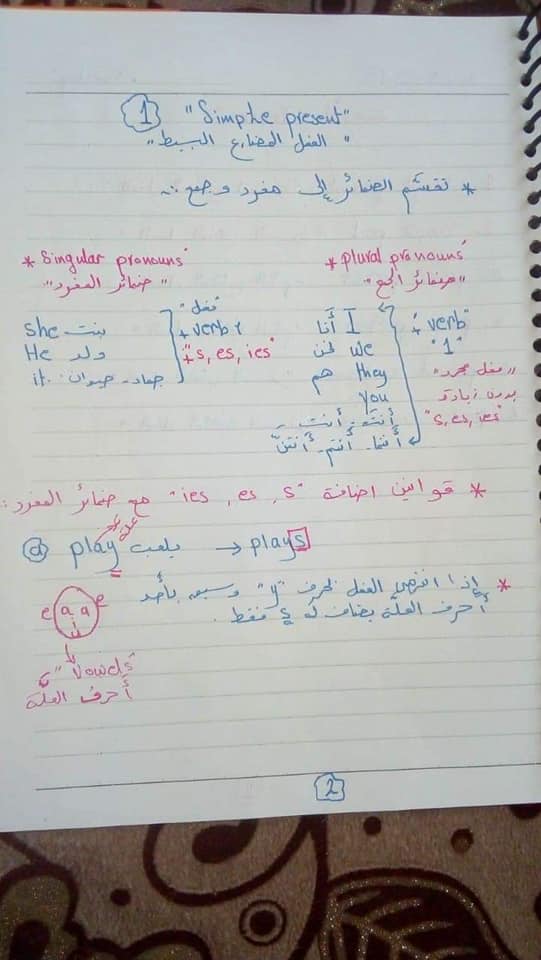 1 "Simple present"
"الفعل المضارع البسيط"
* تقسم الضمائر إلى مفرد وجمع :-
* Singular pronouns"
"ضمائر المفرد"
"فعل"
she بنت
+ verb 1
He ولد
"+s, es, ies"
it. جماد - حيوان
* plural pronouns"
"ضمائر الجمع"
I أنا
"verb
we نحن
"1"
they هم
"فعل مجرد"
you
بدون زيادة
أنتَ - أنتِ -
"s, es, ies"
أنتما - أنتم - أنتنّ
* قوانين اضافة "ies , es , s" مع ضمائر المفرد :
علة
a play يلعب → plays
* إذا انتهى الفعل بحرف "y" وسبقه بأحد
أحرف العلّة يضاف له s فقط .
"Vowels"
أحرف العلّة
2